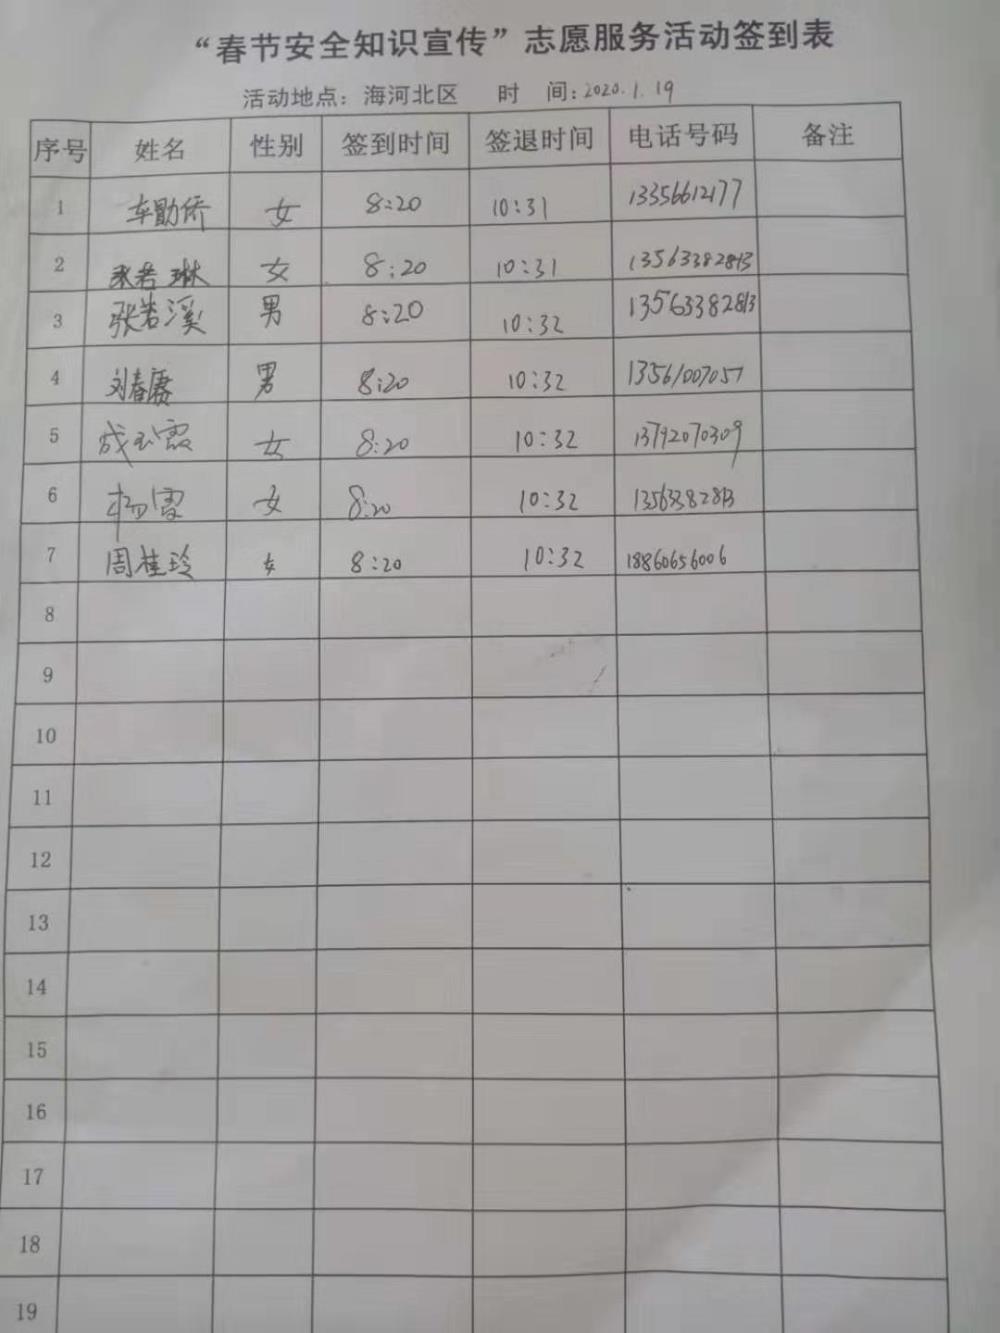 “春节安全知识宣传”志愿服务活动签到表
活动地点：海河北区 时 间：2020.1.19
序号 姓名 性别 签到时间 签退时间 电话号码 备注
1 车勖侨 女 8:20 10:31 13356612177
2 张若琳 女 8:20 10:31 13563382813
3 张若溪 男 8:20 10:32 13563382813
4 刘春赓 男 8:20 10:32 13561007057
5 成玉霞 女 8:20 10:32 13792070309
6 杨雪 女 8:20 10:32 13563382813
7 周桂玲 女 8:20 10:32 18860656006
8
9
10
11
12
13
14
15
16
17
18
19